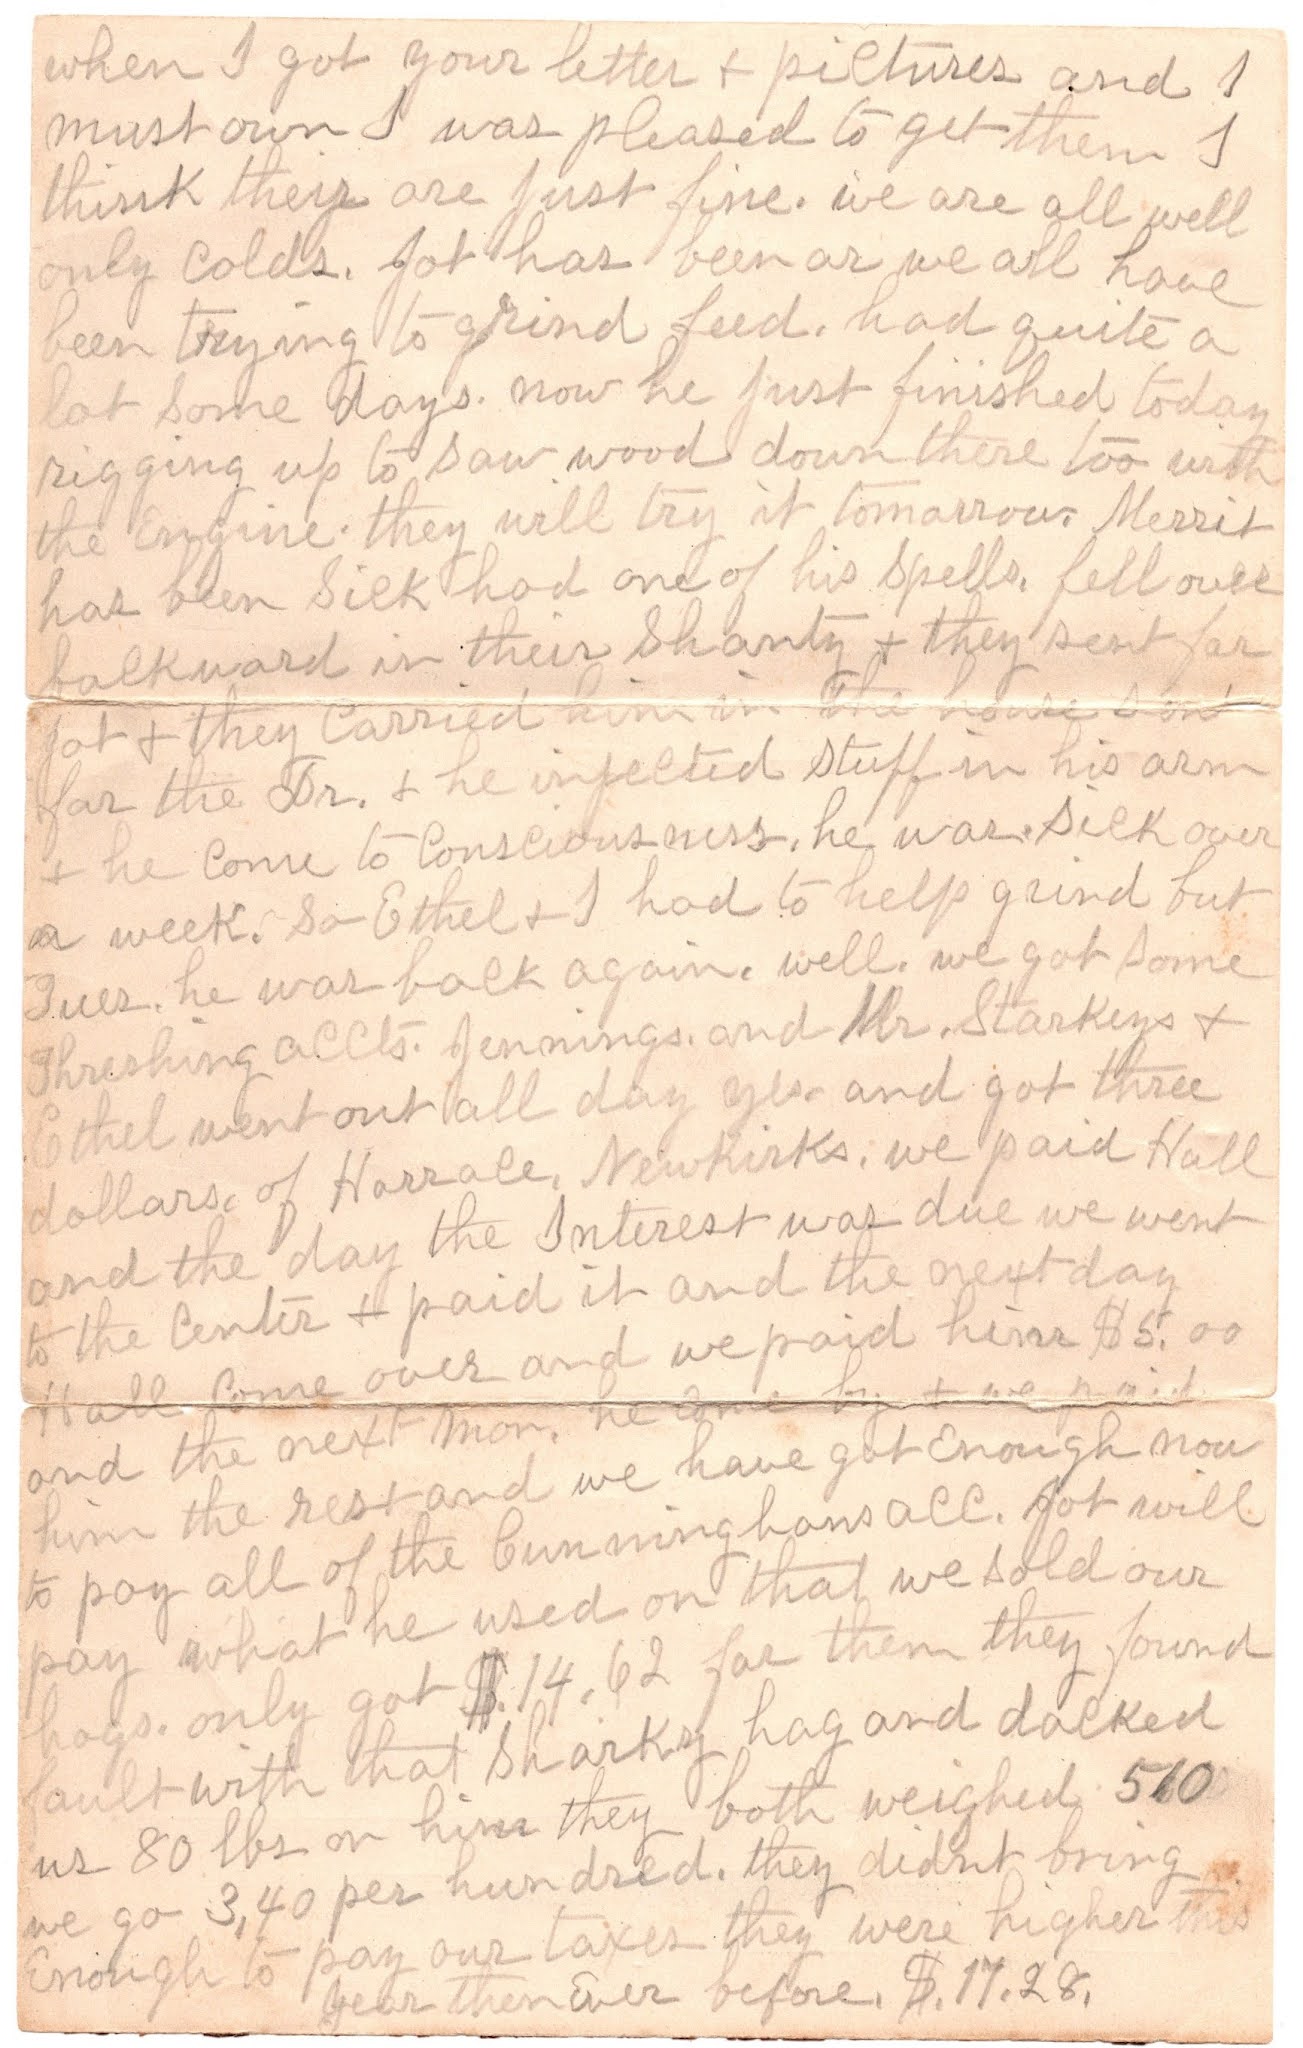 when I got your letter + pictures and I
must own I was pleased to get them I
think their are just fine. we are all well
only Colds. Jot has been or we all have
been trying to grind feed. had quite a
lot some days. now he just finished today
rigging up to saw wood down there too with
the Engine. they will try it tomorrow. Merrit
has been Sick had one of his spells. fell over
backward in their Shanty + they sent for
Jot + they Carried him in the house sent
for the Dr. + he injected stuff in his arm
+ he Come to Consciousness. he was sick over
a week. So Ethel + I had to help grind but
Tues. he was back again. well. we got some
Threshing accts. Jennings. and Mr. Starkeys +
Ethel went out all day yes. and got three
dollars. of Horrace. Newkirks. we paid Hall
and the day the Interest was due we went
to the Center + paid it and the next day
Hall Come over and we paid him $5.00
and the next mon. he Come by + we paid
him the rest and we have got Enough now
to pay all of the Cunninghans acc. Jot will
pay what he used on that we sold our
hogs. only got $.14.62 for them they found
fault with that Sharky hog and docked
us 80 lbs on him they both weighed 510
we go 3,40 per hundred. they didnt bring
Enough to pay our taxes they were higher this
year then Ever before. $.17.28.